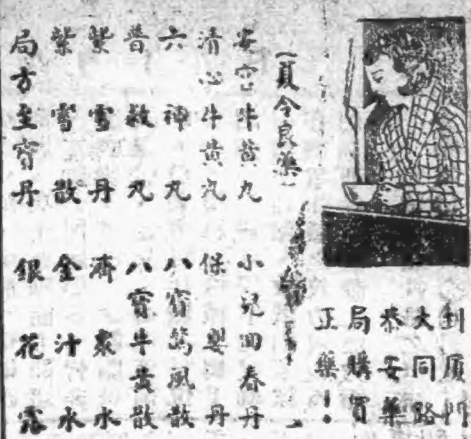 到廈門
大同路
安藥
局購買
正藥！
夏令良藥
安宮牛黃丸 小兒回春丹
清心牛黃丸 保嬰丹
六神丸 八寶驚風散
普救丸 八寶牛黃散
紫雪丹 濟衆水
紫雪散 金汁水
局方至寶丹 銀花露